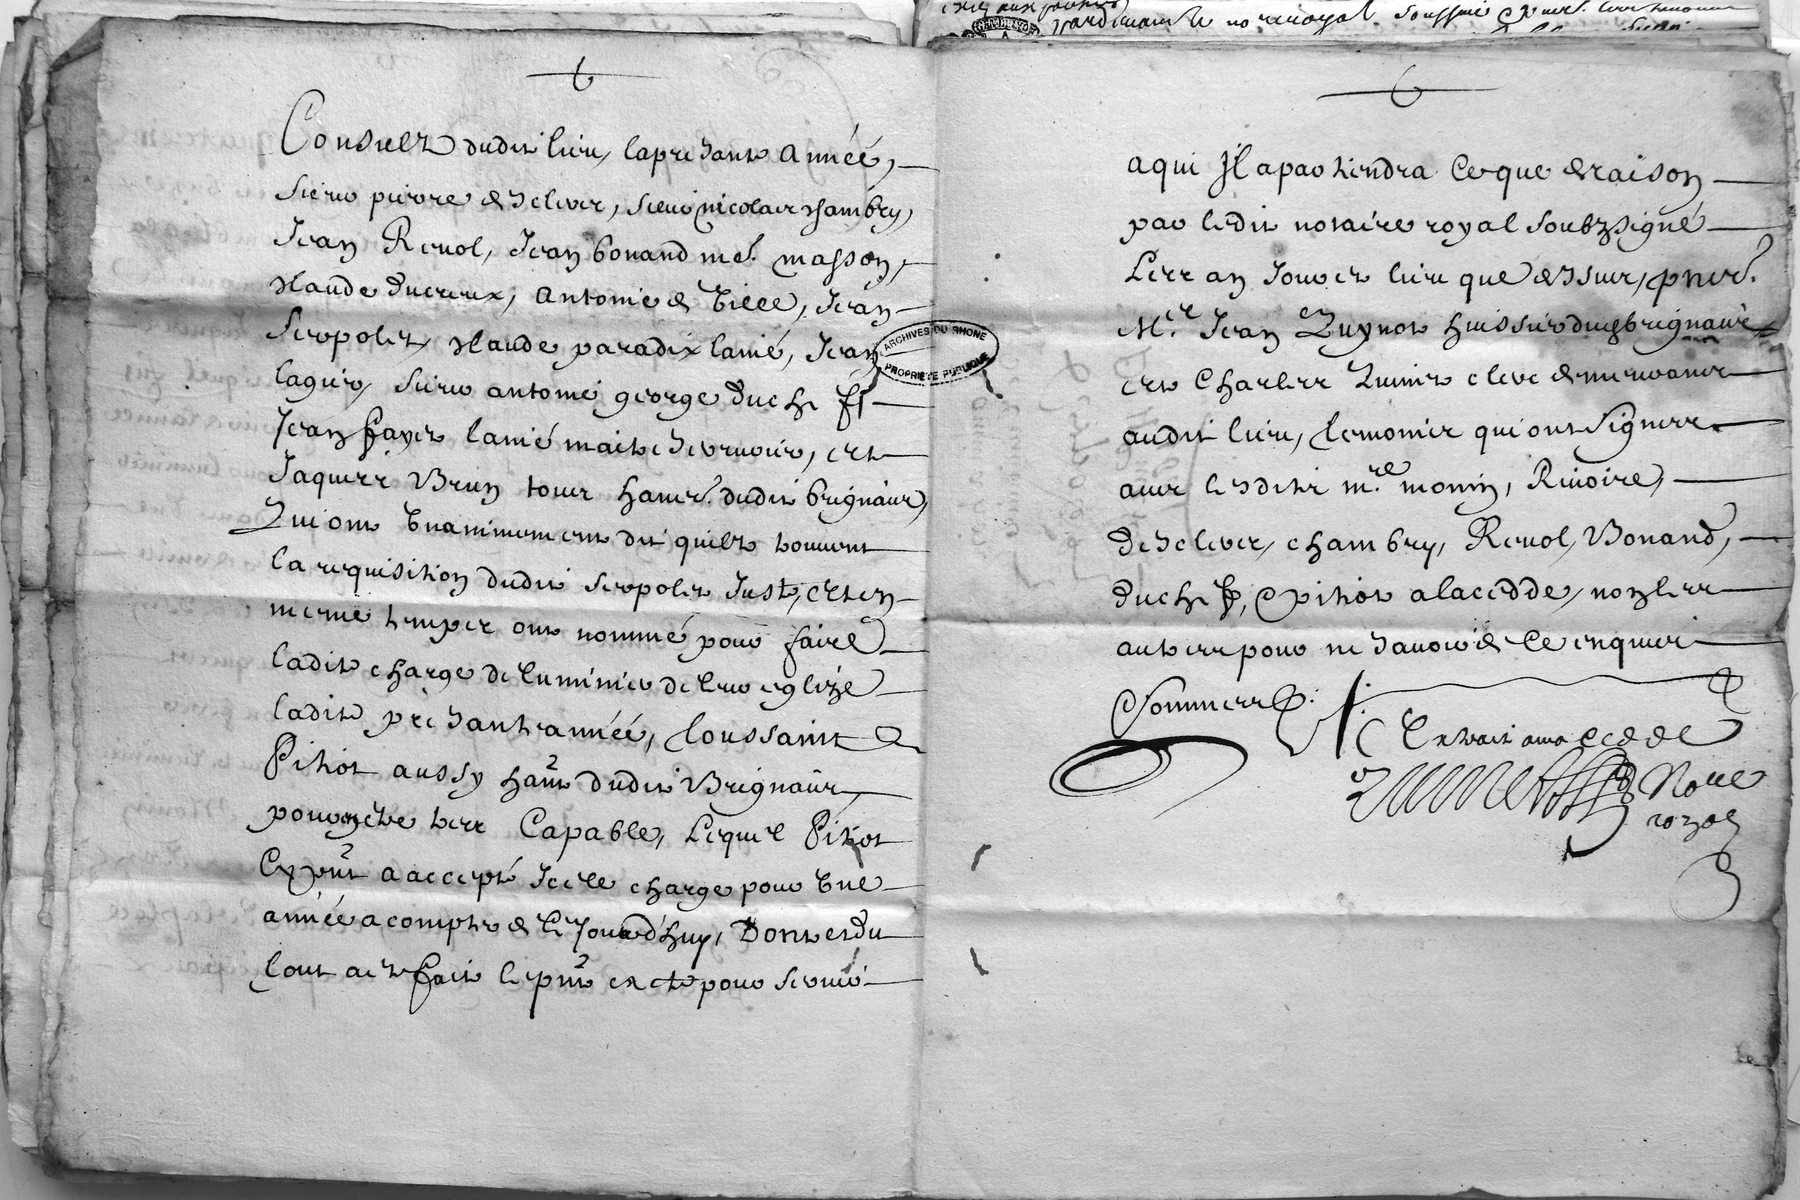 Consulz dudit lieu, la presante année,
sieur pierre deseliver, sieur nicolas chambry,
Jean Revol, Jean bonand me. masson,
Claude ducreux, antoine de ville, Jean
Seropolet, Claude paradix laîné, Jean
lagier, sieur antoine george duch ff
Jean fayet laîné maitre serrurier, et
Jaques Brun tous hans. dudit brignais,
Qui ont unanimement dit quilz trouvent
la requisition dudit seropolet Juste, et en
mesme temps ont nommé pour faire
ladite charge de luminier de leur eglize
ladite presante année, toussaint
Pitiot aussy hant dudit Brignais
pour estre tres Capable, Lequel Pitiot
cy prnt a accepté Jcelle charge pour une
année a compter de ce Jourdhuy, Dont et du
tout act fait le prnt acte pour servir
ARCHIVES DU RHONE
PROPRIÉTÉ PUBLIQUE
a qui Jl apartiendra ce que de raison
par ledit notaire royal soubzsigné
Les an Jour et lieu que dessus, pnce.
Mre. Jean Quynot huissier dud brignais
et Charles clerc demeurans
audit lieu, temoins qui ont signés
avec lesdits mre. monin, Rivoire,
deseliver, chambry, Revol, Bonand,
duch ff, & pitiot a la cedde, non les
autres pour ne savoir de ce enquis
& sommes
Extrait sur cedde
Nore
royal